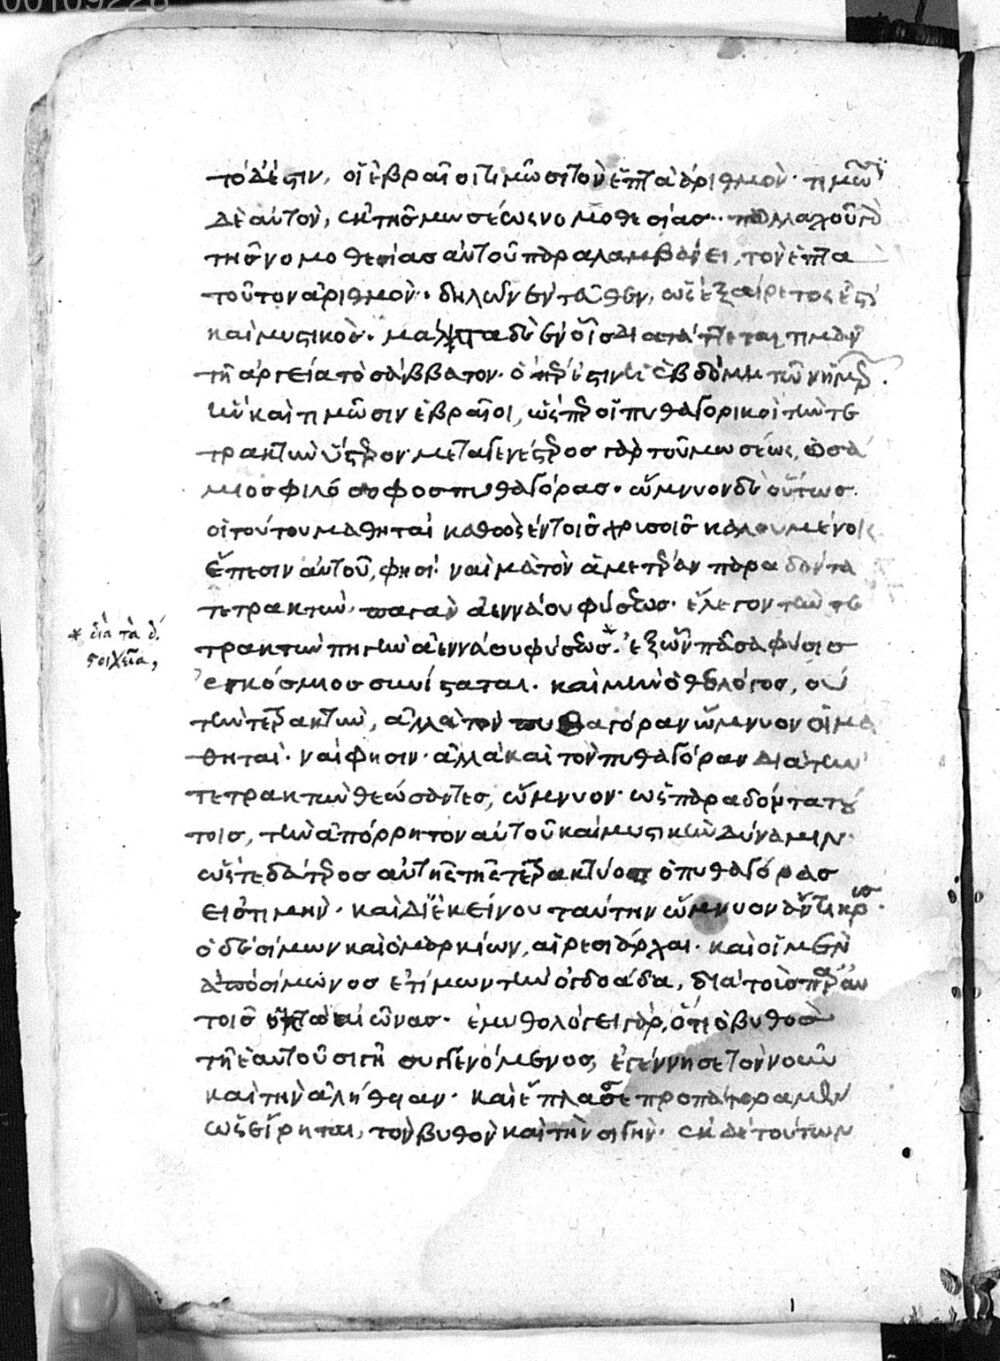 00109228
τὸ δέ ἐστιν, οἱ ἑβραῖοι τιμῶσι τὸν ἑπτὰ ἀριθμόν· τιμῶσι
δὲ αὐτὸν, ἐκ τῆς μωσέως νομοθεσίας·· πολλαχοῦ γὰρ
τῆς νομοθεσίας αὐτοῦ παραλαμβάνει, τὸν ἑπτὰ
τοῦτον ἀριθμόν· δηλῶν ἐντεῦθεν, ὡς ἐξαίρετός ἐστι
καὶ μυστικός· μάλιστα δὲ ἐν οἷς διατάττεται τιμᾶν
τῇ ἀργεία τὸ σάββατον· ὅπερ ἐστὶν ἡ ἑβδόμη τῶν ἡμερῶν·
ἣν καὶ τιμῶσιν ἑβραῖοι, ὥσπερ οἱ πυθαγορικοὶ τὴν τε
τρακτὺν ὕστερον· μεταγενέστερος γὰρ τοῦ μωσέως, ὁ σά
μιος φιλόσοφος πυθαγόρας· ὤμνυον δὲ οὕτως
οἱ τούτου μαθηταὶ καθὼς ἐν τοῖς χρυσοῖς καλουμένοις
ἔπεσιν αὐτοῦ, φησί· ναὶ μὰ τὸν ἁμετέραν παραδόντα
τετρακτὺν, παγὰν ἀεννάου φύσεως· ἔλεγον τὴν τε
τρακτὺν πηγὴν ἀεννάου φύσεως*· ἐξ ὧν πᾶσα φύσις
* διὰ τὰ δ΄
στοιχεῖα,
ἐγκόσμιος συνίσταται· καὶ μὴν ὁ θεολόγος, οὐ
τὴν τετρακτὺν, ἀλλὰ τὸν πυθαγόραν ὤμνυον οἱ μα
θηταί· ναί φησιν· ἀλλὰ καὶ τὸν πυθαγόραν διὰ τὴν
τετρακτὺν θεώσαντες, ὤμνυον· ὡς παραδόντα τού
τοις, τὴν ἀπόρρητον αὐτοῦ καὶ μυστικὴν δύναμιν·
ὥστε δεύτερος αὐτῆς τῆς τετρακτύος ὁ πυθαγόρας
εἰ ὅτι μὴν· καὶ δι' ἐκείνου ταύτην ὤμνυον ἄντικρυς·
ὁ δὲ σίμων καὶ ὁ μαρκίων, αἱρεσιάρχαι· καὶ οἱ μὲν
ἀπὸ σίμωνος ἐτίμων τὴν ὀγδοάδα, διὰ τοὺς παρ' αὐ
τοῖς ὀκτὼ αἰῶνας· ἐμυθολόγει γὰρ, ὅτι ὁ βυθὸς
τῇ ἑαυτοῦ σιγῇ συγγενόμενος, ἐγέννησε τὸν νοῦν
καὶ τὴν ἀλήθειαν· καὶ ἔπλασε προπάτορα μὲν
ὡς εἴρηται, τὸν βυθὸν καὶ τὴν σιγὴν· ἐκ δὲ τούτων